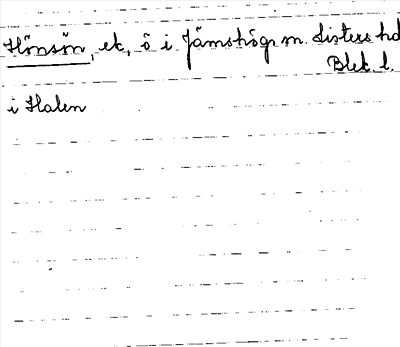 Hönsön, ek, ö i Jämshögs m. Listers hd
Blek. l.
i Halen